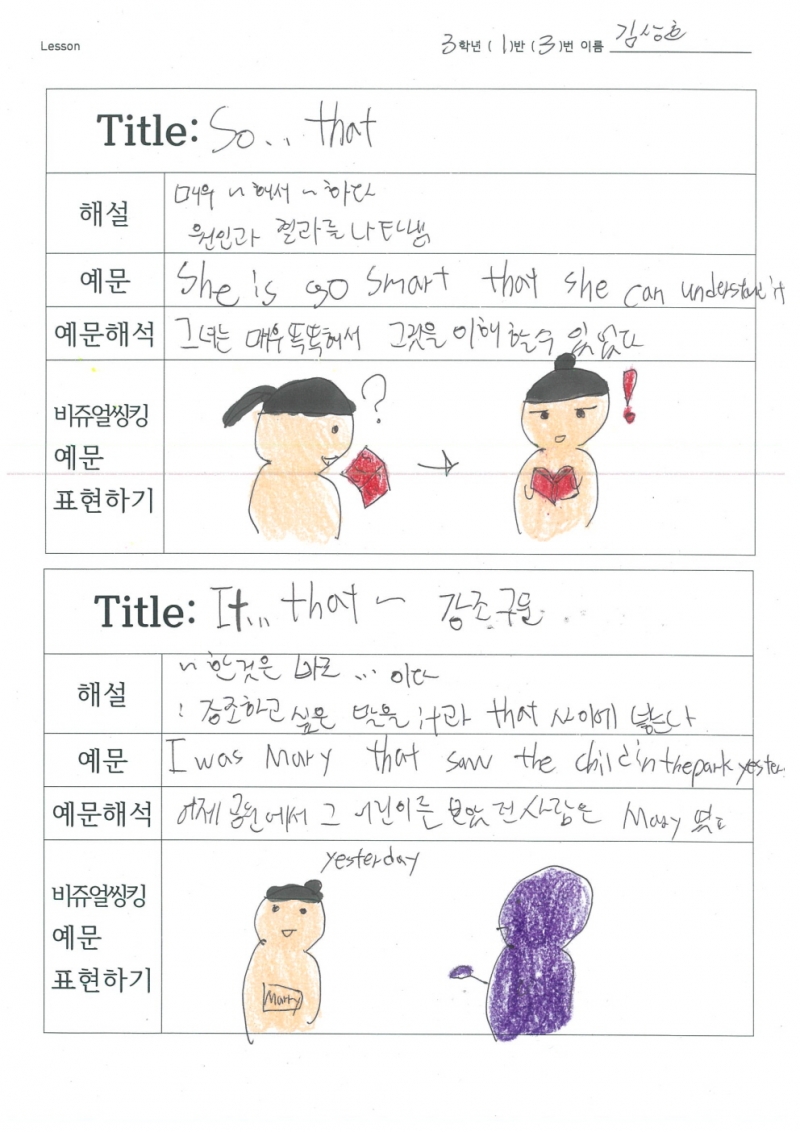 Lesson 3학년 ( 1 )반 ( 3 )번 이름 김상호
Title: So... that
해설 매우 ~해서 ~하다
원인과 결과를 나타냄
예문 She is so smart that she can understand it
예문해석 그녀는 매우 똑똑해서 그것을 이해 할수 있었다
비쥬얼씽킹
예문
표현하기
?
!
Title: It... that ~ 강조구문
해설 ~한것은 바로 ... 이다
: 강조하고 싶은 말을 it과 that 사이에 넣는다
예문 I was Mary that saw the child in the park yester
예문해석 어제 공원에서 그 어린이를 보았던 사람은 Mary 였다
yesterday
비쥬얼씽킹
예문
표현하기
Marry